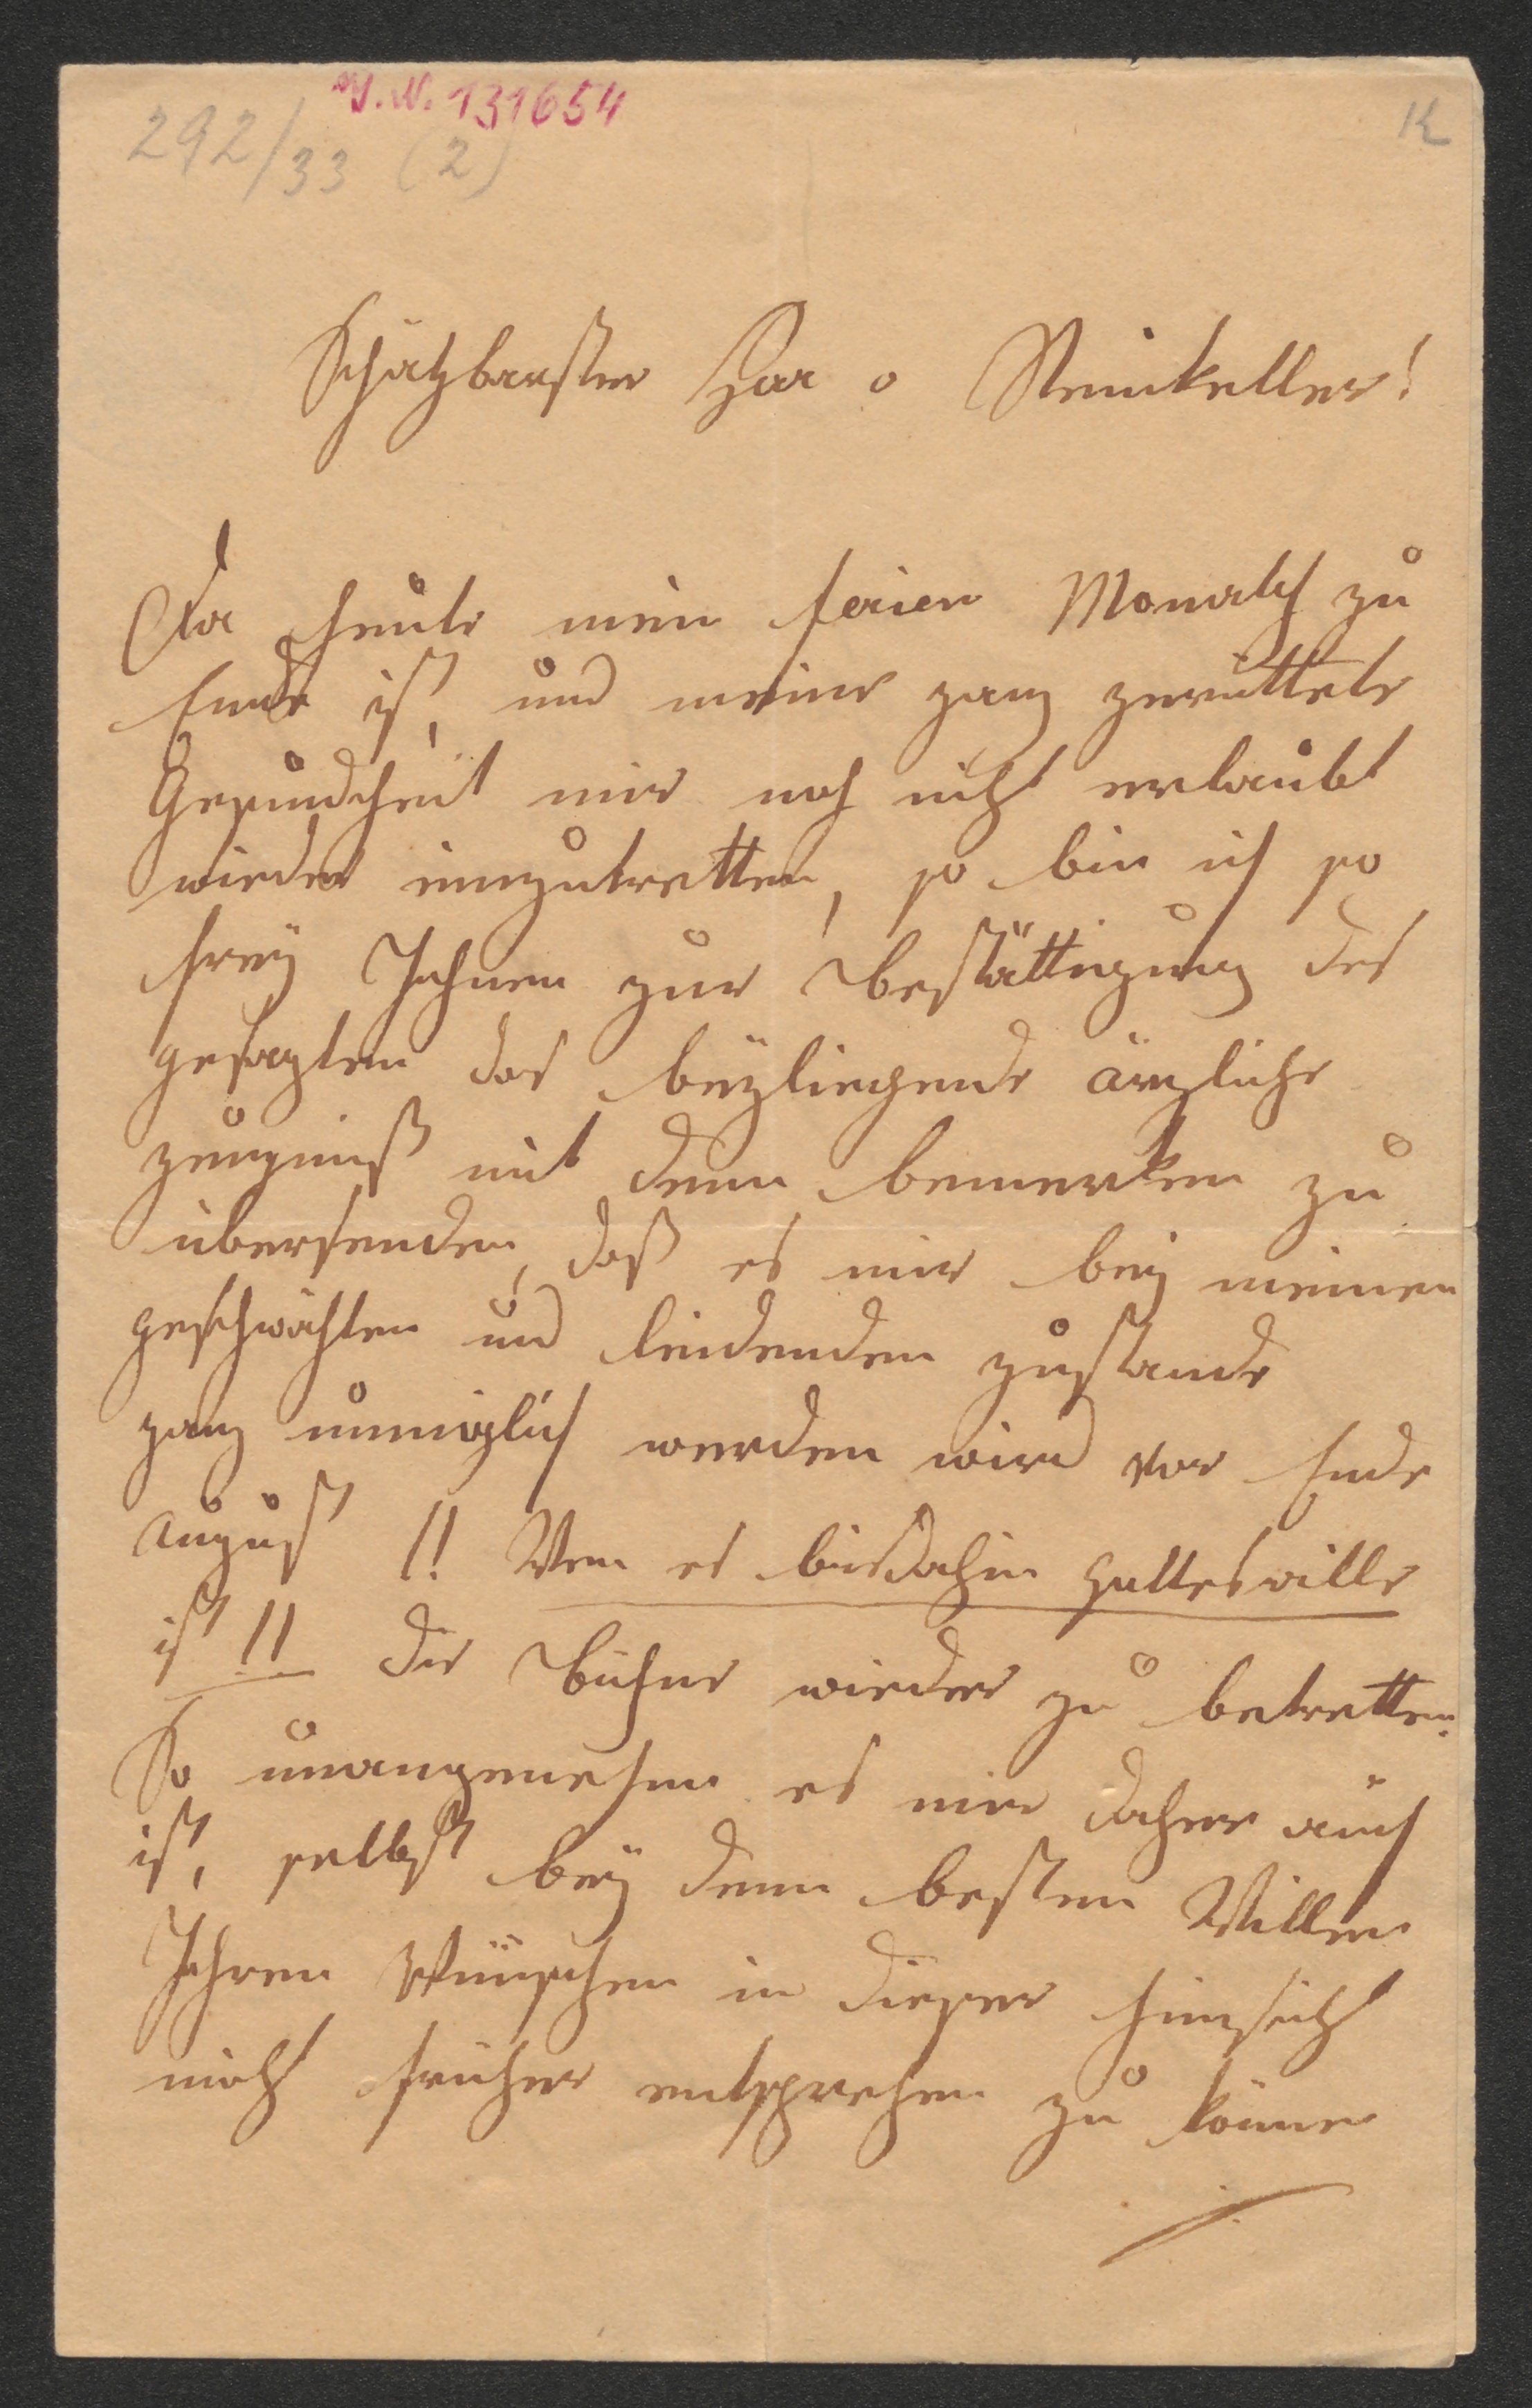 I.N. 131654
292/33 (2)
K
Schätzbarster Her v Steinkeller!
Da heute mein ferien Monath zu
Ende ist, und meine ganz zerrüttete
Gesundheit mir noch nicht erlaubt
wieder einzutretten, so bin ich so
frey Ihnen zur Bestättigung des
gesagten das beyliegende ärzliche
zeugniß mit dem bemerken zu
übersenden, daß es mir bey meinen
geschwächten und leidenden zustande
ganz unmöglich werden wird vor Ende
August !! Wen es bis dahin Gottes wille
ist !! die Bühne wieder zu betretten.
So unangenehm es mir daher auch
ist, selbst bey dem besten Willen
Ihren Wünschen in dieser hinsicht
nicht früher entsprechen zu können